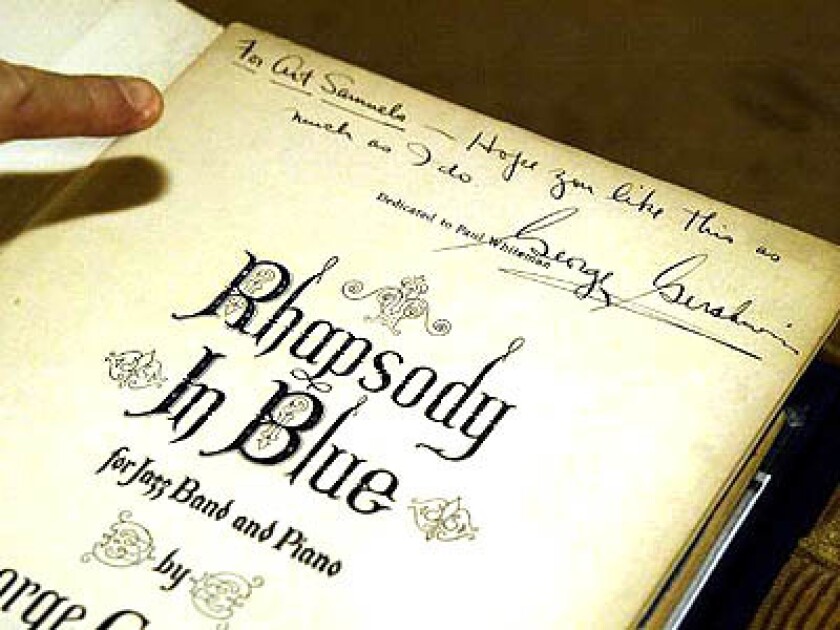 For Art Samuels — Hope you like this as
much as I do.
Dedicated to Paul Whiteman
George Gershwin
Rhapsody
In Blue
for Jazz Band and Piano
by
orge G